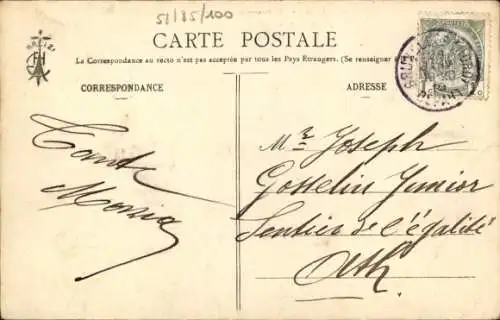 51/85/100
CARTE POSTALE
La Correspondance au recto n'est pas acceptée par tous les Pays Étrangers. (Se renseigner
CORRESPONDANCE
ADRESSE
Tante
Maria
Mr Joseph
Gosselin Junior
Sentier de l'égalité
Ath